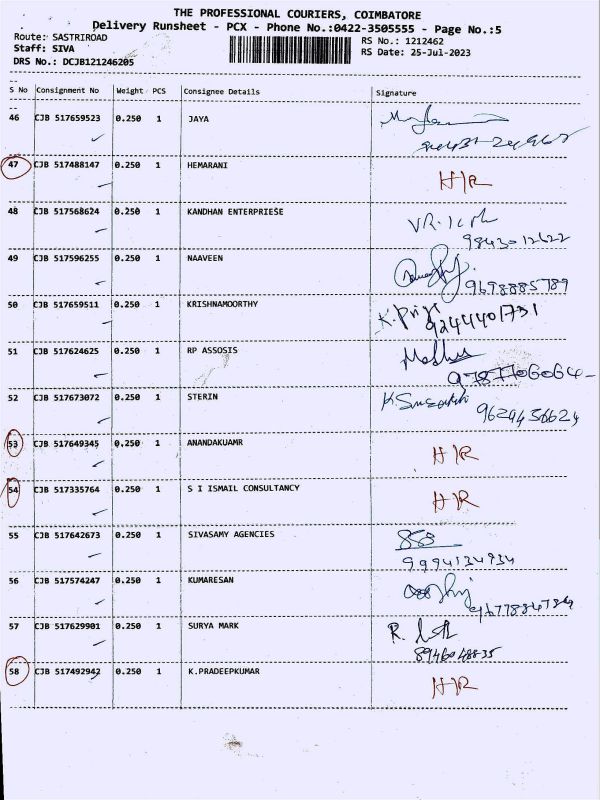 THE PROFESSIONAL COURIERS, COIMBATORE
Delivery Runsheet - PCX - Phone No.:0422-3505555 - Page No.:5
Route: SASTRIROAD
RS No.: 1212462
Staff: SIVA
RS Date: 25-Jul-2023
DRS No.: DCJB121246205
S No Consignment No Weight PCS Consignee Details Signature
46 CJB 517659523 0.250 1 JAYA
47 CJB 517488147 0.250 1 HEMARANI H/R
48 CJB 517568624 0.250 1 KANDHAN ENTERPRIESE
9843012622
49 CJB 517596255 0.250 1 NAAVEEN
9698885789
50 CJB 517659511 0.250 1 KRISHNAMOORTHY K. Priya
9244401731
51 CJB 517624625 0.250 1 RP ASSOSIS
9787706064
52 CJB 517673072 0.250 1 STERIN
9629456624
53 CJB 517649345 0.250 1 ANANDAKUAMR H/R
54 CJB 517335764 0.250 1 S I ISMAIL CONSULTANCY H/R
55 CJB 517642673 0.250 1 SIVASAMY AGENCIES
9994134934
56 CJB 517574247 0.250 1 KUMARESAN
57 CJB 517629901 0.250 1 SURYA MARK
8946048835
58 CJB 517492942 0.250 1 K.PRADEEPKUMAR H/R